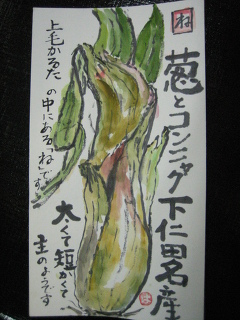 ね
葱とコンニャク下仁田名産
上毛かるた
の中にある「ね」です。
太くて短かくて
主のようです